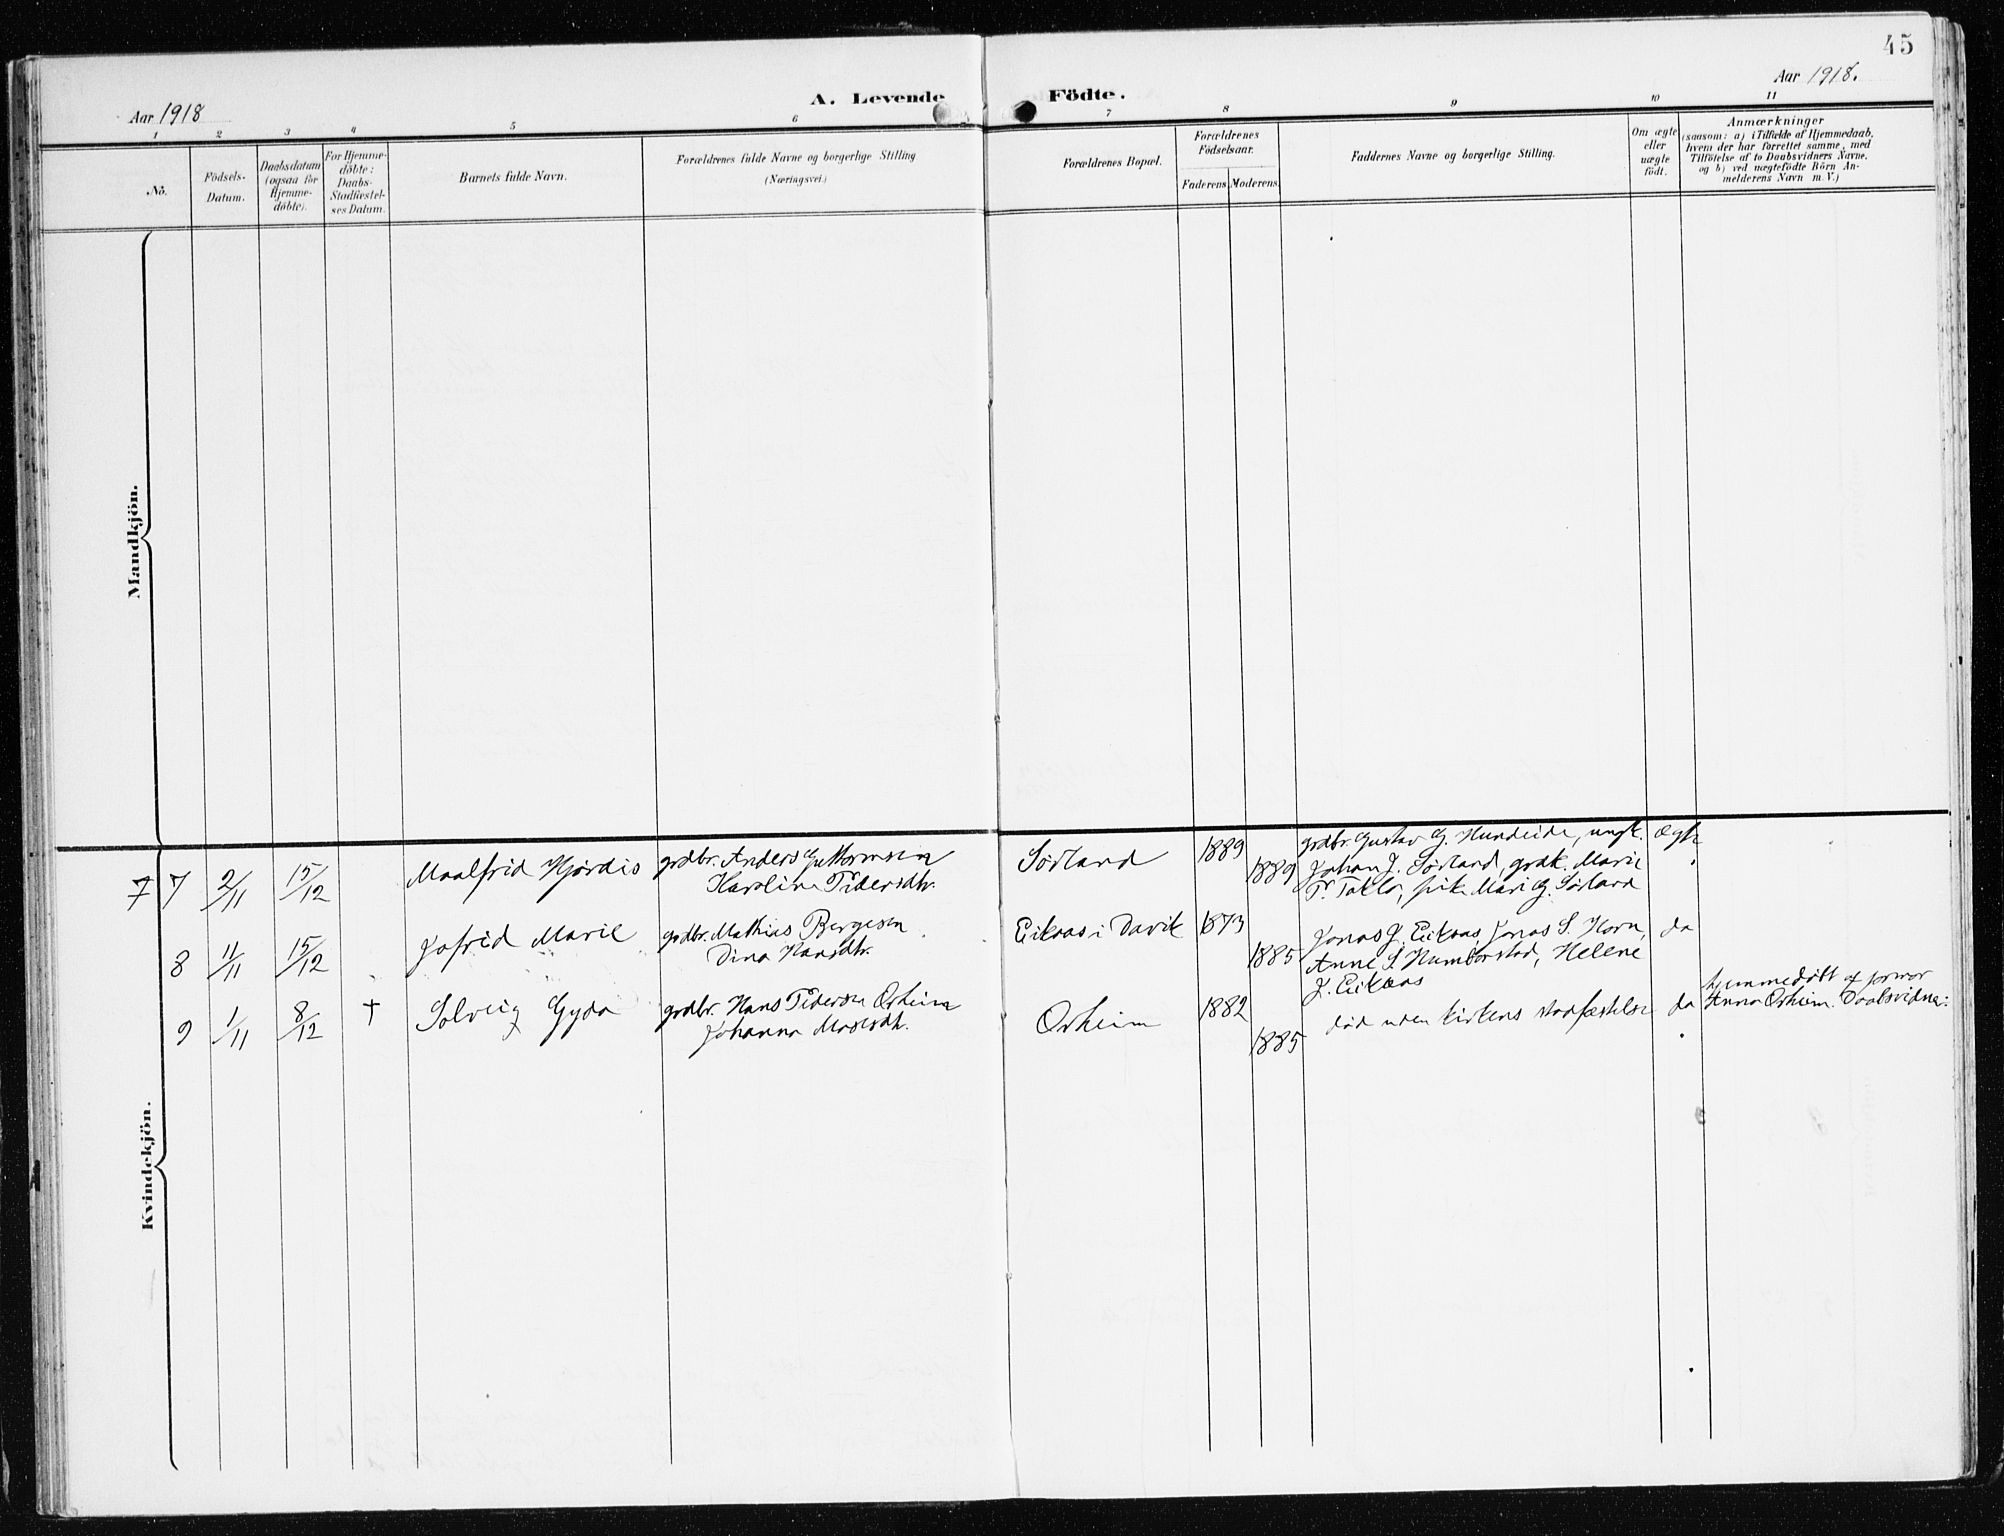 45
Aar 1918
A. Levende Födte.
Aar 1918.
1 2 3 4 5 6 7 8 9 10 11
No.
Födsels-
Datum.
Daabsdatum
(ogsaa for
Hjemme-
döbte).
For Hjemme-
döbte:
Daabs-
Stadfæstel-
ses Datum.
Barnets fulde Navn.
Forældrenes fulde Navne og borgerlige Stilling
(Næringsvei.)
Forældrenes Bopæl.
Forældrenes
Födselsaar.
Faderens. Moderens.
Faddernes Navne og borgerlige Stilling.
Om ægte
eller
uægte
födt.
Anmærkninger
(saasom: a) i Tilfælde af Hjemmedaab,
hvem der har forrettet samme, med
Tilföielse af to Daabsvidners Navne,
og b) ved uægtefödte Börn An-
melderens Navn m. V.)
Mandkjön.
Kvindekjön.
7 7 2/11 15/12 Maalfrid Hjördis
grdbr. Anders Guttormsen
Karoline Pedersdtr.
Sörland 1889
1889
grdbr. Gustav G. Hundeide, ungk.
Johan J. Sörland, grdk. Marie
P. Taklo, pike Mari G. Sörland
ægte
8 11/11 15/12 Jofrid Marie
grdbr. Mathias Bergesen
Dina Hansdtr.
Eikaas i Davik 1873
1885
Jonas J. Eikaas, Jonas S. Horn,
Anne S. Humborstad, Helene
J. Eikaas
da
9 1/11 8/12 † Solveig Gyda
grdbr. Hans Pedersen Osheim
Johanna Mosesdtr.
Osheim 1882
1885
död uden kirkens stadfæstelse da
hjemmedöbt af
Anna Osheim. Daabsvidner: